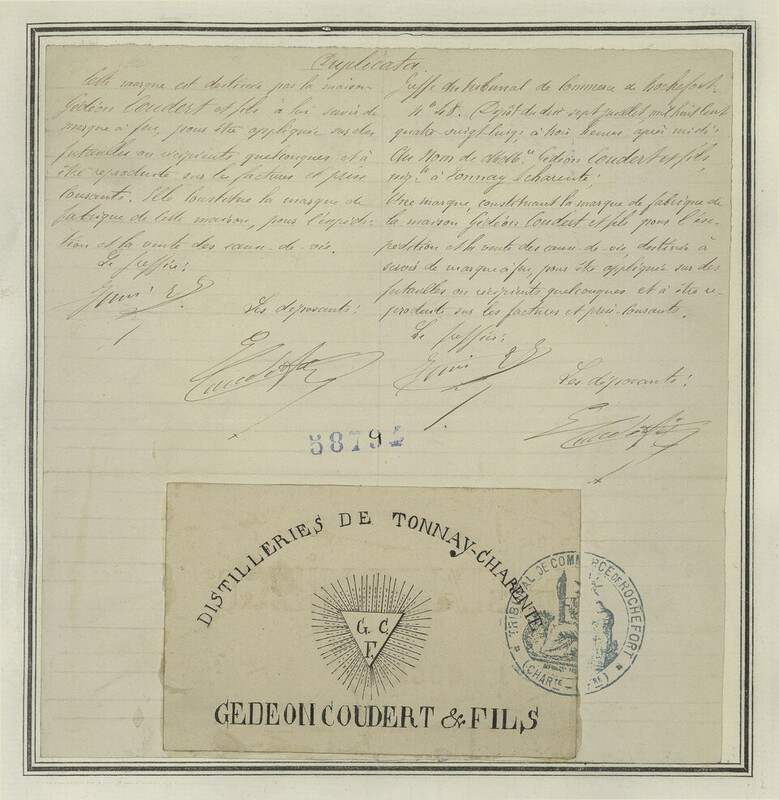 Duplicata
Cette marque est destinée par la maison
Gédéon Coudert et fils à lui servir de
marque à feu, pour être appliquée sur des
futailles ou récipients quelconques et à
être reproduite sur les factures et prix-
courants. Elle constitue la marque de
fabrique de cette maison, pour l'expédi-
tion et la vente des eaux-de-vie.
Le greffier:
Les déposants:
Greffe du tribunal de Commerce de Rochefort.
N° 48. Dépôt du dix sept juillet mil huit cent
quatre-vingt, à trois heures, après midi
Au Nom de Gédéon Coudert et fils,
à Tonnay Charente;
Une marque, constituant la marque de fabrique de
la maison Gédéon Coudert et fils pour l'ex-
pédition et la vente des eaux-de-vie, destinée à
servir de marque à feu, pour être appliquée sur des
futailles ou récipients quelconques et à être re-
produite sur les factures et prix-courants.
Le greffier:
Les déposants:
58794
DISTILLERIES DE TONNAY-CHARENTE
G. C.
F.
GEDEON COUDERT & FILS
TRIBUNAL DE COMMERCE DE ROCHEFORT